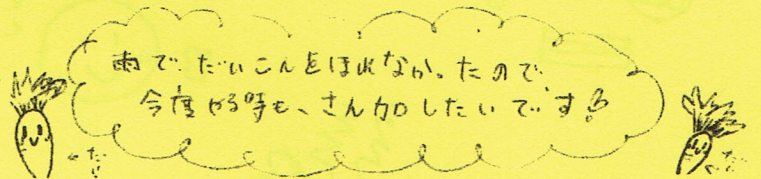 雨で、だいこんをほれなかったので
今度やる時も、さん加したいです♪